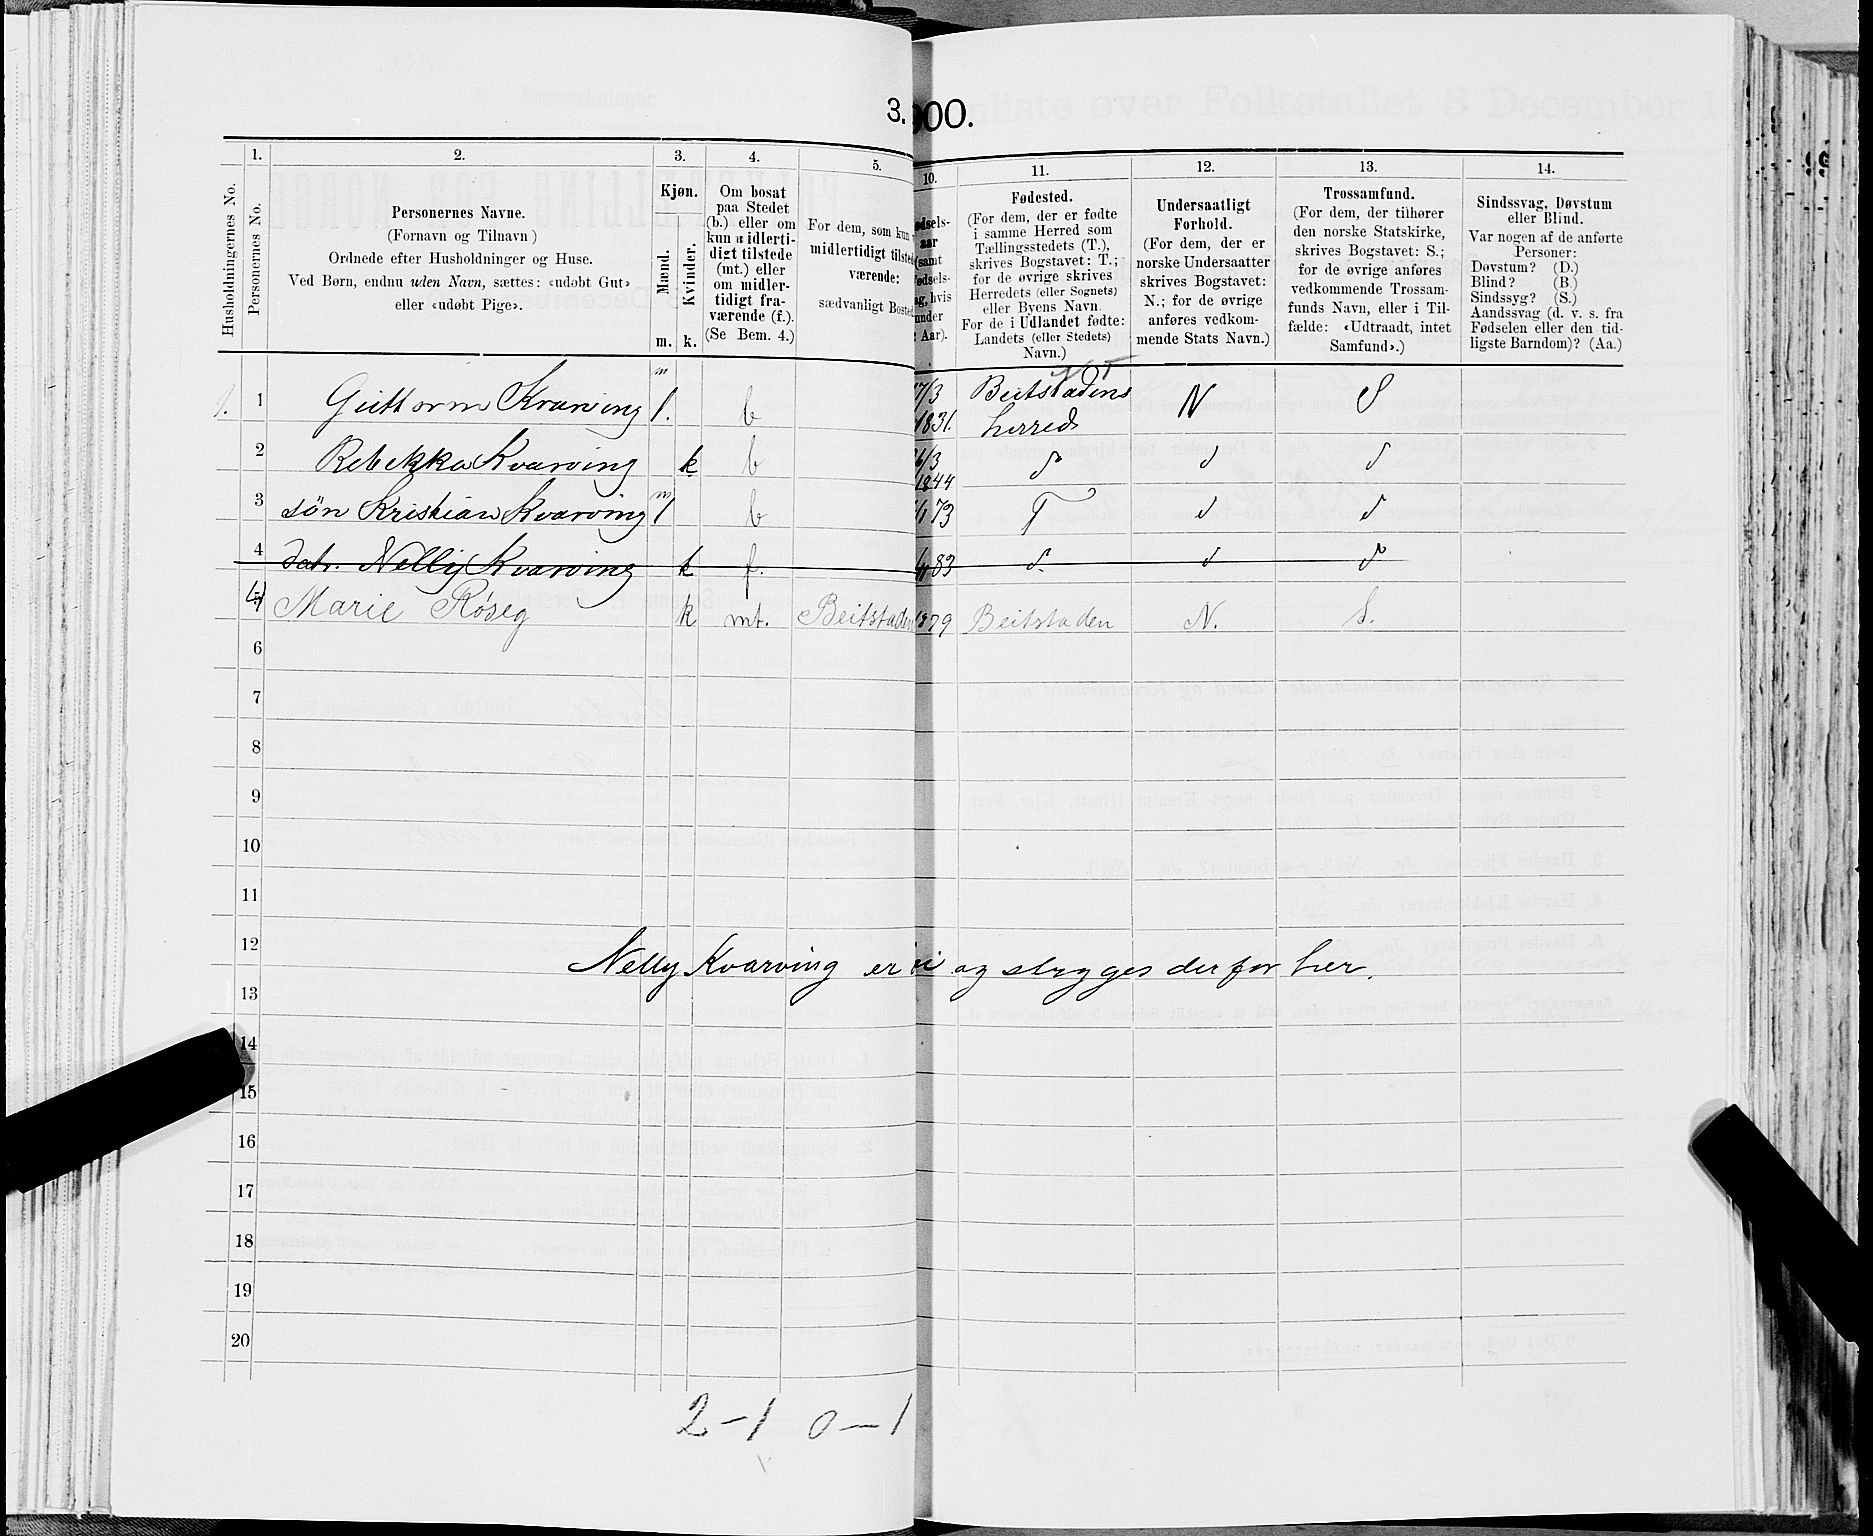 3. 900.
1. 2. 3. 4. 5. 10. 11. 12. 13. 14.
Husholdningernes No.
Personernes No.
Personernes Navne.
(Fornavn og Tilnavn)
Ordnede efter Husholdninger og Huse.
Ved Børn, endnu uden Navn, sættes: «udøbt Gut»
eller «udøbt Pige».
Kjøn.
Mænd.
Kvinder.
m. k.
Om bosat
paa Stedet
(b.) eller om
kun midlerti-
digt tilstede
(mt.) eller
om midler-
tidigt fra-
værende (f.).
(Se Bem. 4.)
For dem, som kun
midlertidigt tilstede
værende:
sædvanligt Bosted
ødsels-
aar
samt
ødsels-
ag, hvis
under
Aar).
Fødested.
(For dem, der er fødte
i samme Herred som
Tællingsstedets (T.),
skrives Bogstavet: T.;
for de øvrige skrives
Herredets (eller Sognets)
eller Byens Navn.
For de i Udlandet fødte:
Landets (eller Stedets)
Navn.)
Undersaatligt
Forhold.
(For dem, der er
norske Undersaatter
skrives Bogstavet:
N.; for de øvrige
anføres vedkom-
mende Stats Navn.)
Trossamfund.
(For dem, der tilhører
den norske Statskirke,
skrives Bogstavet: S.;
for de øvrige anføres
vedkommende Trossam-
funds Navn, eller i Til-
fælde: «Udtraadt, intet
Samfund».)
Sindssvag, Døvstum
eller Blind.
Var nogen af de anførte
Personer:
Døvstum? (D.)
Blind? (B.)
Sindssyg? (S.)
Aandssvag (d. v. s. fra
Fødselen eller den tid-
ligste Barndom)? (Aa.)
1. 1 Guttorm Kvarving m 1. b 7/3 1831. Beitstadens herred N S
2 Rebekka Kvarving k b 6/3 1844 d d d
3 søn Kristian Kvarving m 1 b 73 T d d
4 datr. Nelly Kvarving k f. 83 d. d d
4 Marie Røseg k mt. Beitstaden 879 Beitstaden N. S.
6
7
8
9
10
11
12
Nelly Kvarving er og stryges derfor her.
13
14
15
16
17
18
19
20
2-1 0-1